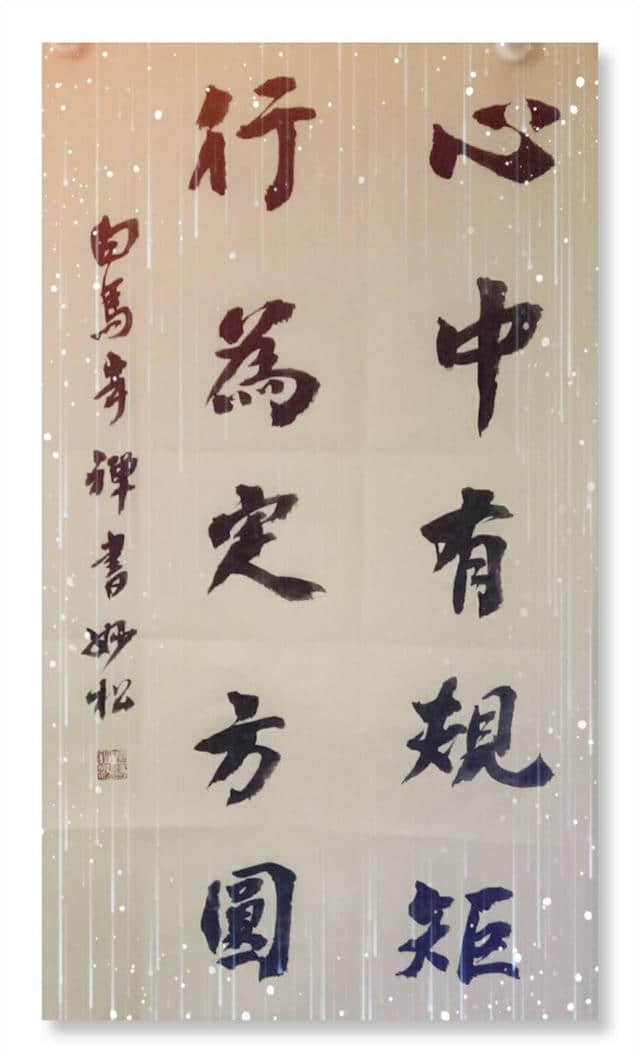 心中有規矩
行為定方圓
白馬寺禪書妙松